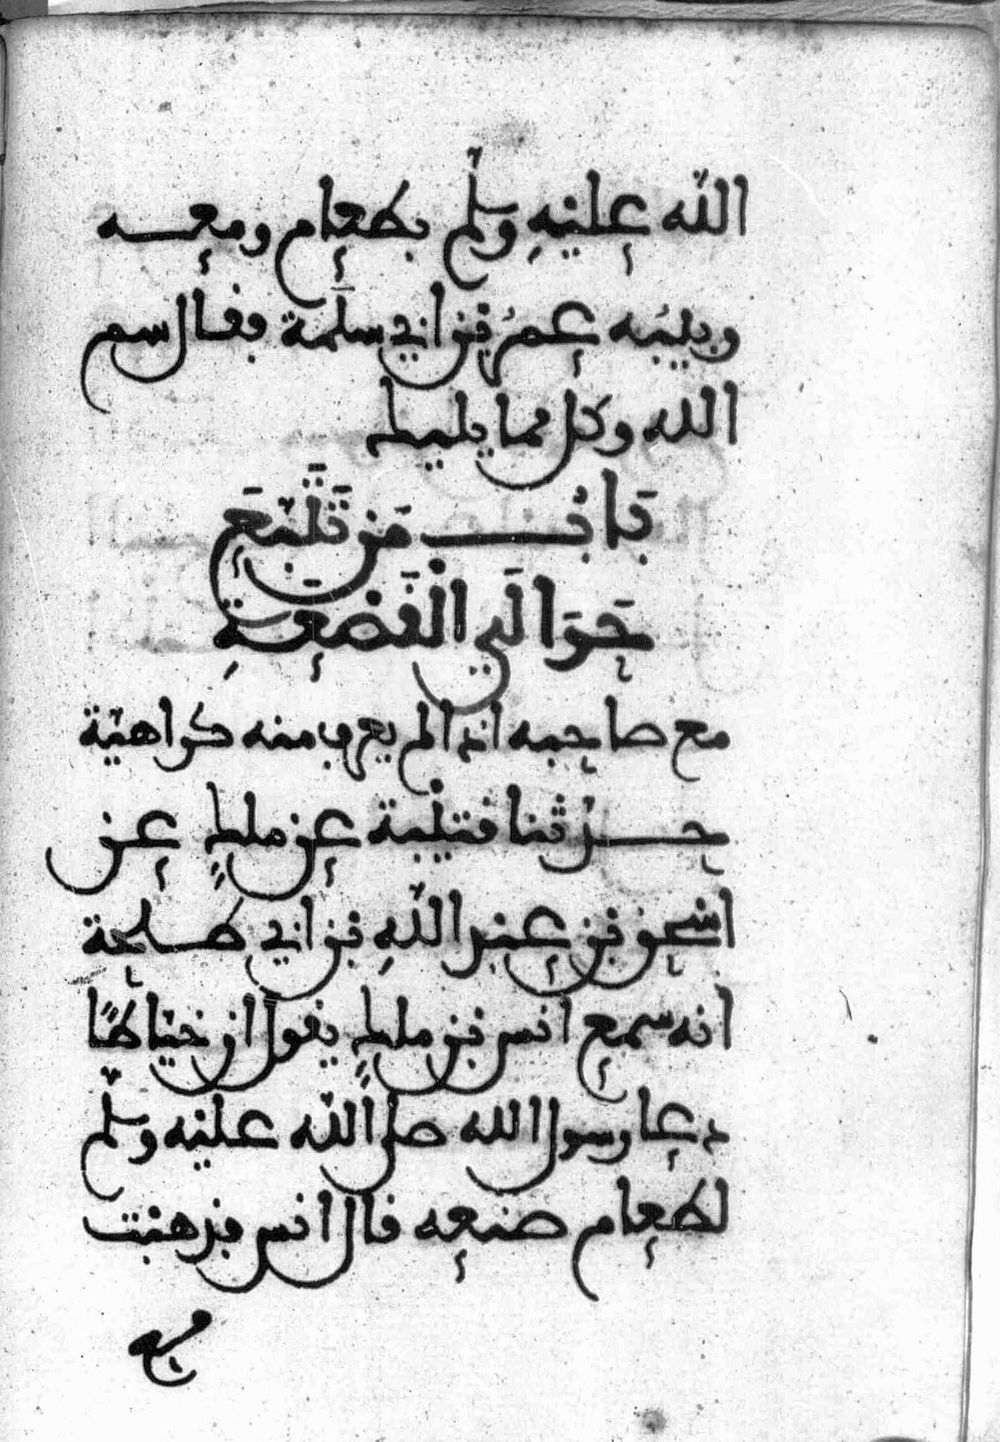 الله عليه وسلم بطعام ومعه
ربيبه عمر بن ابي سلمة فقال سم
الله وكل مما يليك
بَابُ مَن تَتَبَّعَ
حَوَالَيِ الْقَصْعَةِ
مع صاحبه اذا لم يعرف منه كراهية
حدثنا قتيبة عن ملك عن
اسحق بن عبد اللهِ بن ابي طلحة
انه سمع انس بن ملكٍ يقول ان خياطًا
دعا رسول الله صلى الله عليه وسلم
لطعام صنعه قال انس فذهبت
مع